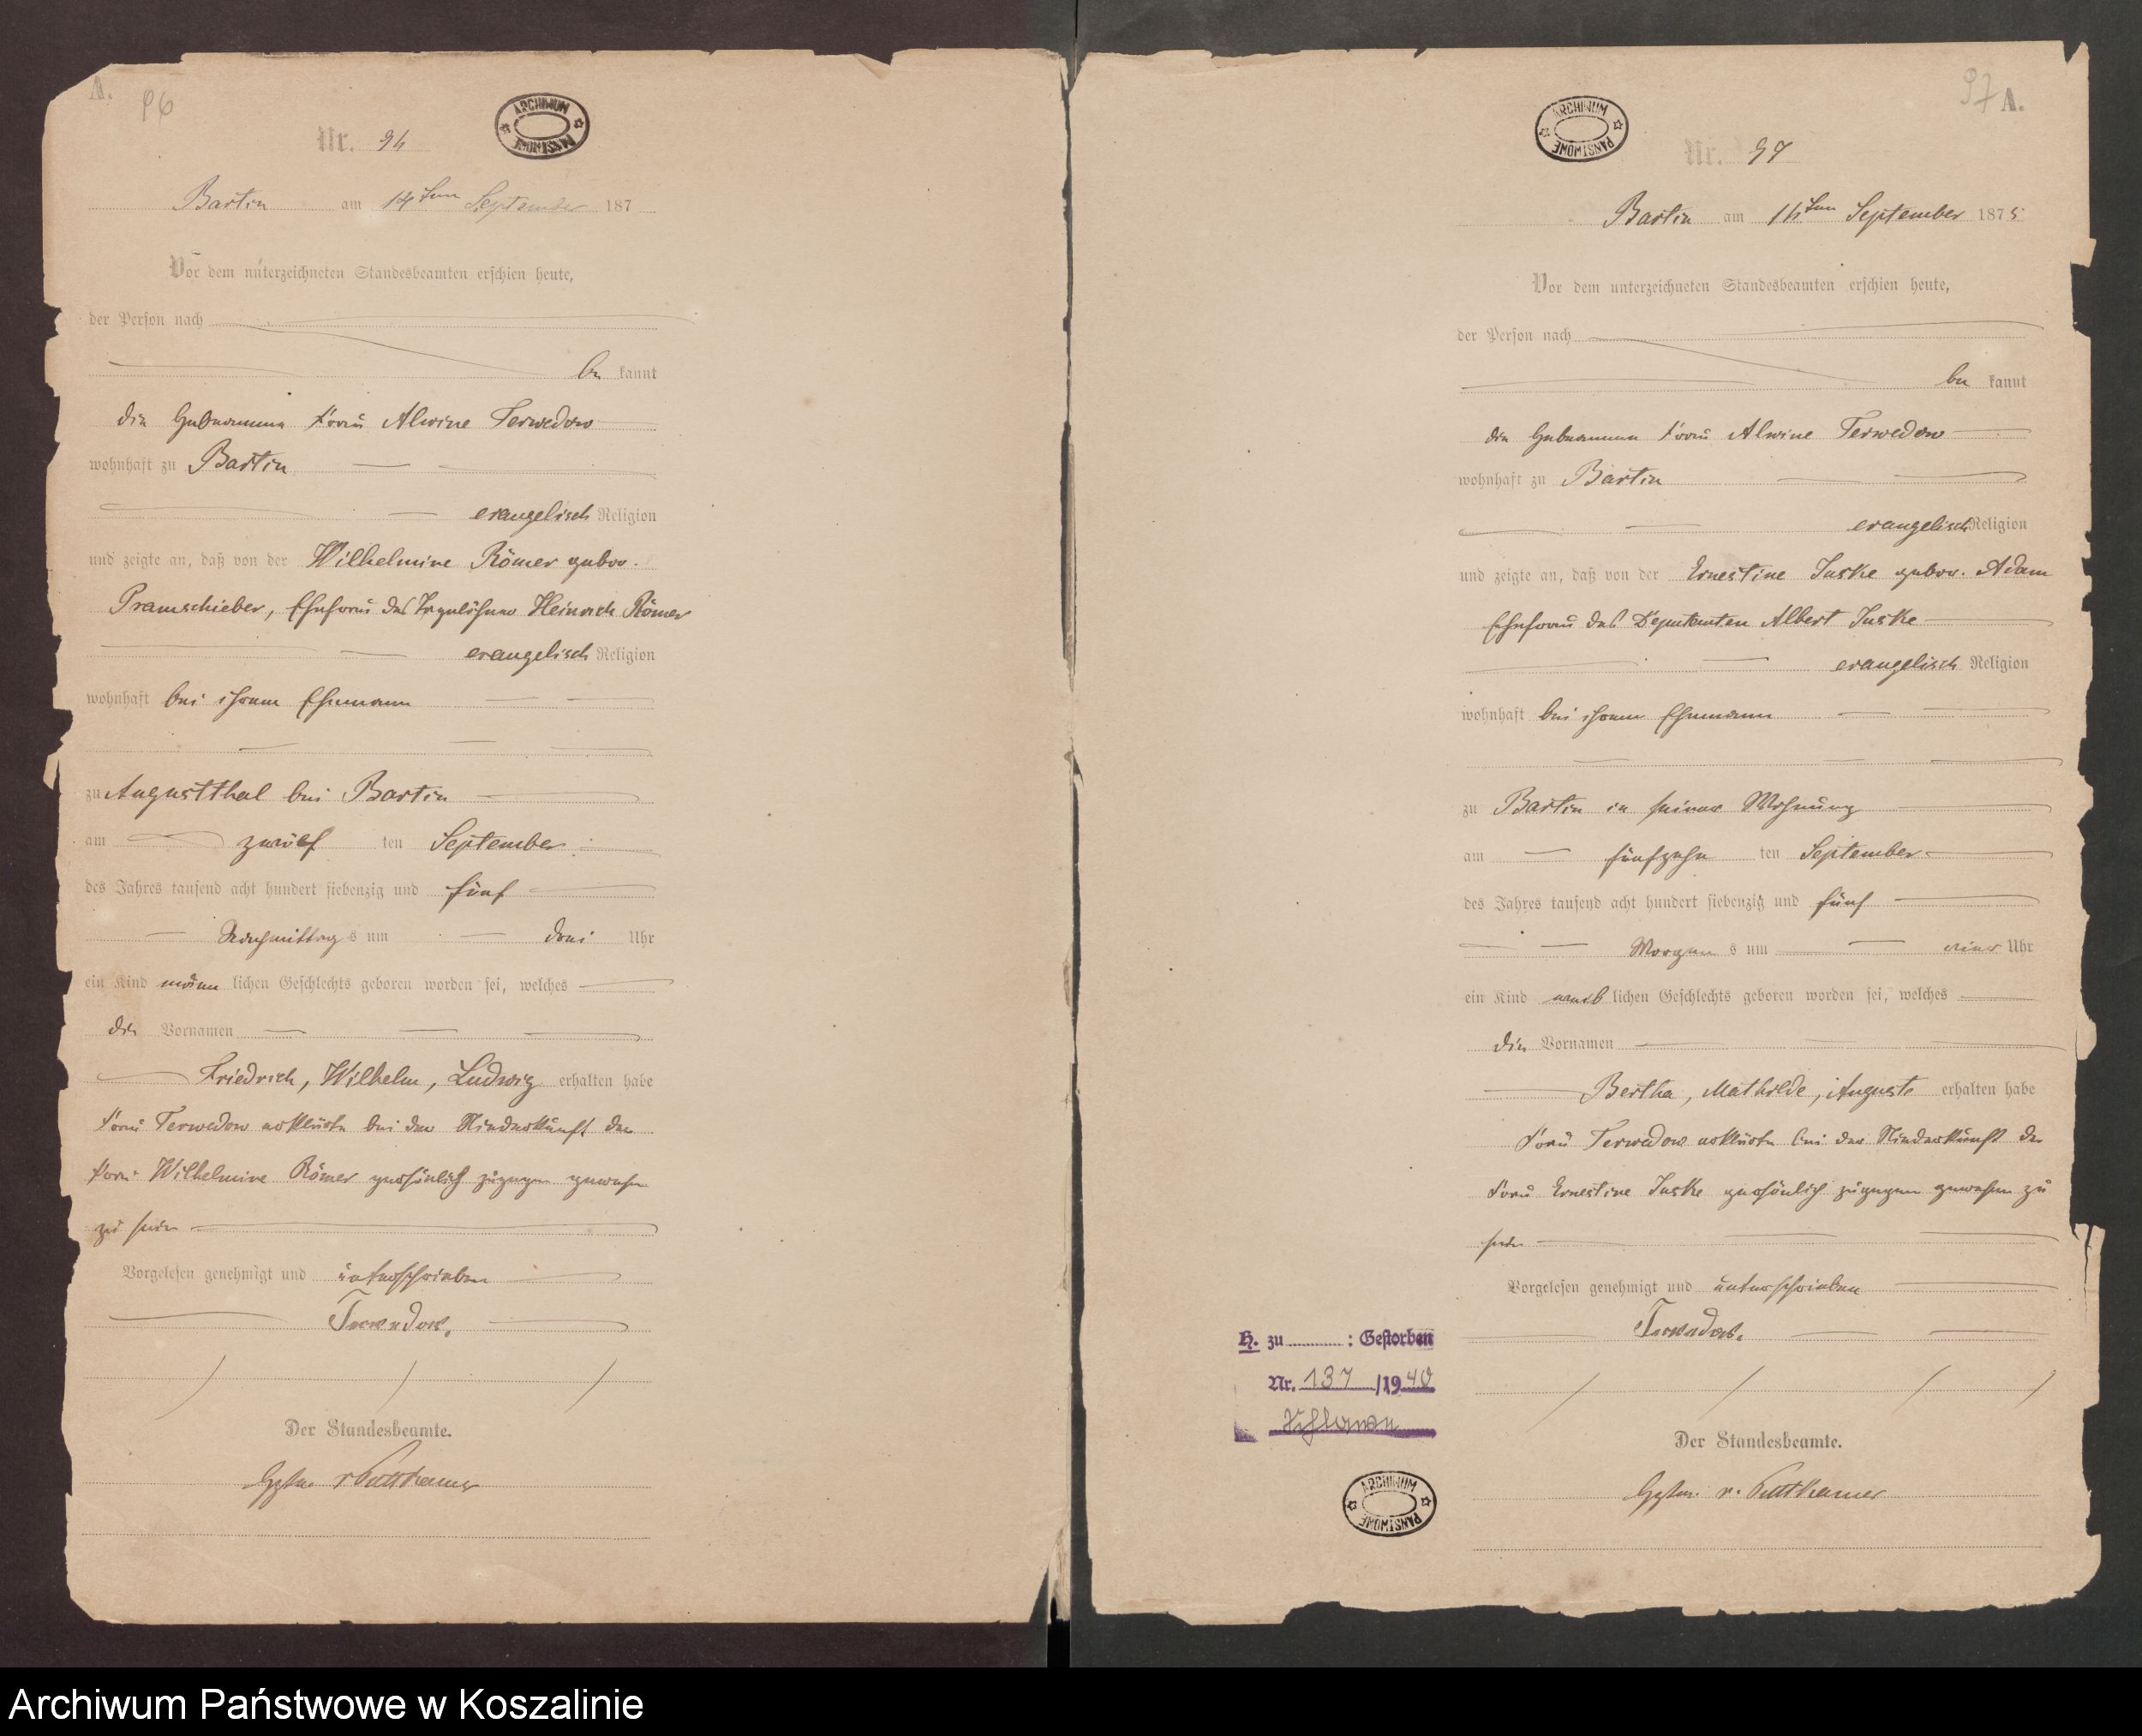 A.
96
Nr. 96
ARCHIWUM PAŃSTWOWE
Bartin am 14ten September 187
Vor dem unterzeichneten Standesbeamten erschien heute,
der Person nach
be kannt
die Hebamme Frau Alwine Terwedow
wohnhaft zu Bartin
evangelisch Religion
und zeigte an, daß von der Wilhelmine Römer gebor.
Pramschieber, Ehefrau des Heinrich Römer
evangelisch Religion
wohnhaft bei ihrem Ehemann
zu Augustthal bei Bartin
am zwölf ten September
des Jahres tausend acht hundert siebenzig und fünf
Nachmittag s um drei Uhr
ein Kind männ lichen Geschlechts geboren worden sei, welches
die Vornamen
Friedrich, Wilhelm, Ludwig erhalten habe
Frau Terwedow erklärte bei der Niederkunft der
Frau Wilhelmine Römer persönlich zugegen gewesen
zu sein
Vorgelesen genehmigt und unterschrieben
Terwedow.
Der Standesbeamte.
v Puttkamer
97 A.
ARCHIWUM PAŃSTWOWE
Nr. 97
Bartin am 16ten September 1875
Vor dem unterzeichneten Standesbeamten erschien heute,
der Person nach
be kannt
die Hebamme Frau Alwine Terwedow
wohnhaft zu Bartin
evangelisch Religion
und zeigte an, daß von der Ernestine Juske gebor. Adam
Ehefrau des Deputanten Albert Juske
evangelisch Religion
wohnhaft bei ihrem Ehemann
zu Bartin in seiner Wohnung
am fünfzehn ten September
des Jahres tausend acht hundert siebenzig und fünf
Morgen s um einer Uhr
ein Kind weib lichen Geschlechts geboren worden sei, welches
die Vornamen
Bertha, Mathilde, Auguste erhalten habe
Frau Terwedow erklärte bei der Niederkunft der
Frau Ernestine Juske persönlich zugegen gewesen zu
sein
Vorgelesen genehmigt und unterschrieben
Terwedow.
Der Standesbeamte.
v. Puttkamer
H. zu : Gestorben
Nr. 137 /1940
ARCHIWUM PAŃSTWOWE
Archiwum Państwowe w Koszalinie